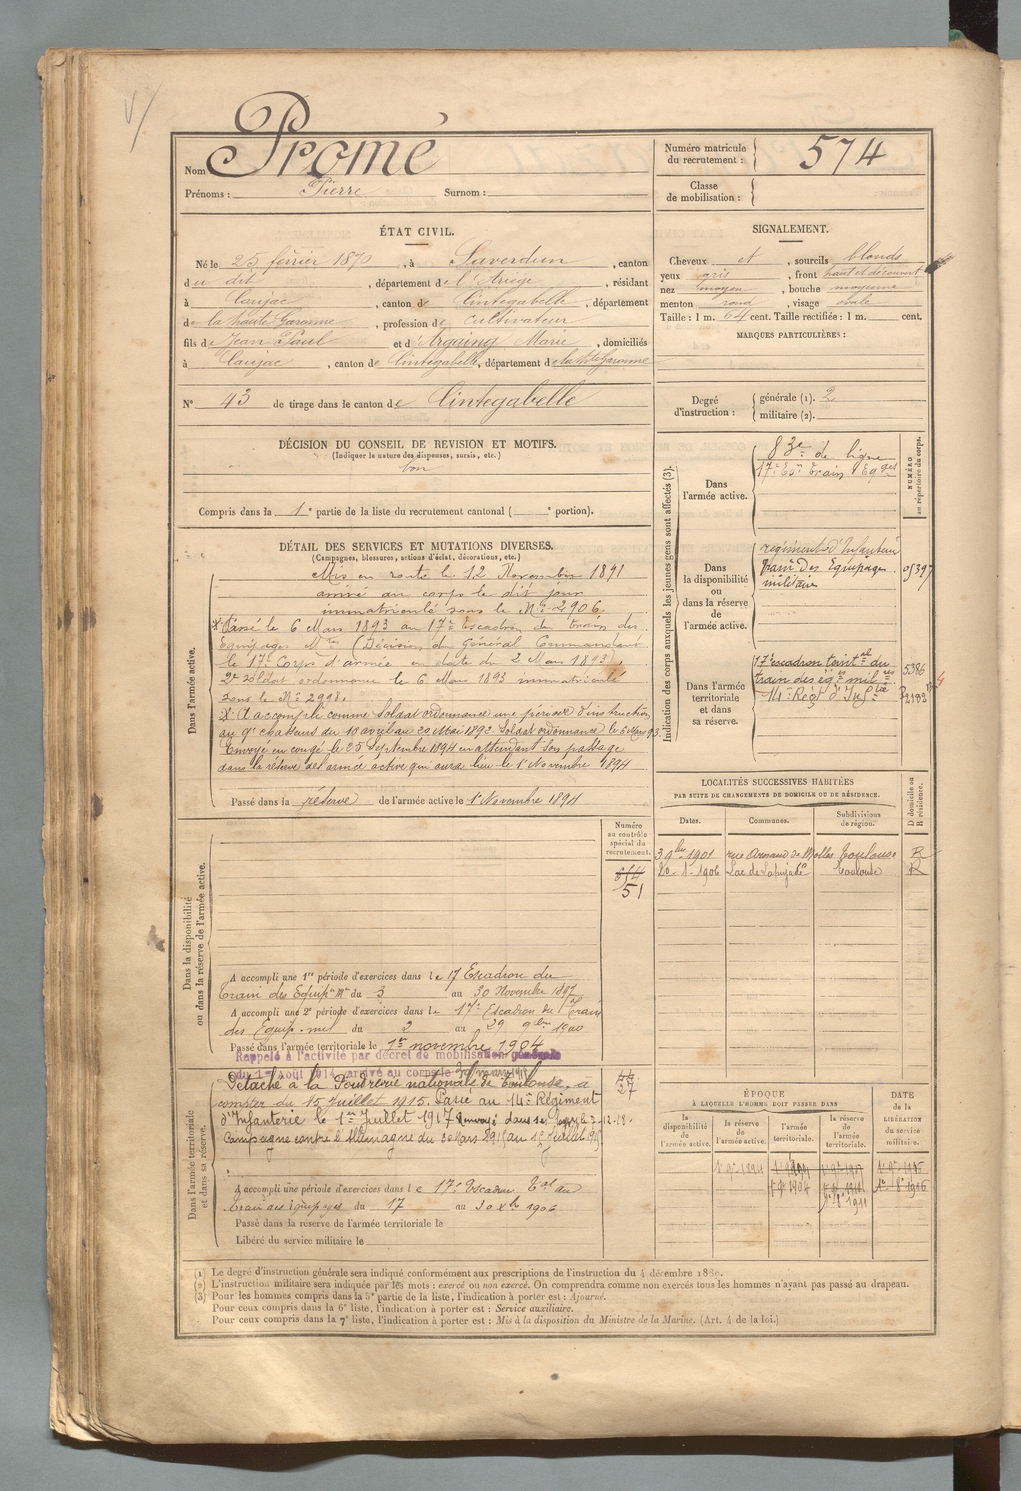 V/
Nom Promé
Prénoms : Pierre Surnom :
Numéro matricule du recrutement : 574
Classe de mobilisation :
ÉTAT CIVIL.
Né le 25 février 1870, à Saverdun, canton
du dit, département de l'Ariège, résidant
à Caujac, canton de Cintegabelle, département
de la haute Garonne, profession de cultivateur
fils de Jean Paul et d' Marie, domiciliés
à Caujac, canton de Cintegabelle, département de la Hte Garonne
N° 43 de tirage dans le canton de Cintegabelle
SIGNALEMENT.
Cheveux et, sourcils blonds
yeux gris, front haut et découvert
nez moyen, bouche moyenne
menton rond, visage ovale
Taille : 1 m. 64 cent. Taille rectifiée : 1 m. cent.
MARQUES PARTICULIÈRES :
Degré d'instruction : générale (1). 2
militaire (2).
DÉCISION DU CONSEIL DE REVISION ET MOTIFS.
(Indiquer la nature des dispenses, sursis, etc.)
bon
Compris dans la 1e partie de la liste du recrutement cantonal ( e portion).
DÉTAIL DES SERVICES ET MUTATIONS DIVERSES.
(Campagnes, blessures, actions d'éclat, décorations, etc.)
Dans l'armée active.
Mis en route le 12 Novembre 1891
arrivé au corps le dit jour
immatriculé sous le N° 2906.
* Passé le 6 Mars 1893 au 17e Escadron du train des
Equipages Mres (Décision du Général Commandant
le 17e Corps d'armée en date du 2 Mars 1893).
2e soldat ordonnance le 6 Mars 1893 immatriculé
sous le N° 2998.
A accompli comme Soldat ordonnance une période d'instruction
au 9e chasseurs du 10 avril au 20 Mai 1892. Soldat ordonnance le 6 Mars 93.
Envoyé en congé le 25 Septembre 1894 en attendant son passage
dans la réserve de l'armée active qui aura lieu le 1er Novembre 1894
Passé dans la réserve de l'armée active le 1er Novembre 1894
Indication des corps auxquels les jeunes gens sont affectés (3).
NUMÉRO au répertoire du corps.
Dans l'armée active.
83e de ligne
17e Eson train Eqges
Dans la disponibilité ou dans la réserve de l'armée active.
régiment d'Infanterie
train des Equipages 05397
militaire
Dans l'armée territoriale et dans sa réserve.
17e escadron territal du 5386
train des éqges milres
14e Régt d'Infrie
LOCALITÉS SUCCESSIVES HABITÉES
PAR SUITE DE CHANGEMENTS DE DOMICILE OU DE RÉSIDENCE.
D domicile ou R résidence.
Dates. Communes. Subdivisions de région.
3 9bre 1901 rue Arnaud de Molles Toulouse R
20-1-1906 Lac de Toulouse R
Dans la disponibilité ou dans la réserve de l'armée active.
Numéro au contrôle spécial du recrutement.
51
A accompli une 1re période d'exercices dans le 17 Escadron du
train des Equipes Mres du 3 au 30 Novembre 1897
A accompli une 2e période d'exercices dans le 17e Escadron du train
des Equip. mil du 2 au 29 9bre 1900
Passé dans l'armée territoriale le 1er novembre 1904
Rappelé à l'activité par décret de mobilisation générale
du 1er Août 1914, arrivé au corps le 30 mars 1915
Dans l'armée territoriale et dans sa réserve.
37
Détaché à la Poudrerie nationale de Toulouse, à
compter du 15 juillet 1915. Passé au 14e Régiment
d'Infanterie le 1er Juillet 1917 Envoyé dans ses foyers le 2-12-18.
Campagne contre l'Allemagne du 30 Mars 1915 au Juillet 1915
A accompli une période d'exercices dans le 17e Escadron Tal du
train des équipages du 17 au 30 Xbre 1906
Passé dans la réserve de l'armée territoriale le
Libéré du service militaire le
ÉPOQUE
À LAQUELLE L'HOMME DOIT PASSER DANS
la disponibilité de l'armée active.
la réserve de l'armée active.
l'armée territoriale.
la réserve de l'armée territoriale.
DATE de la LIBÉRATION du service militaire.
1er 9bre 1894
(1) Le degré d'instruction générale sera indiqué conformément aux prescriptions de l'instruction du 4 décembre 1889.
(2) L'instruction militaire sera indiquée par les mots : exercé ou non exercé. On comprendra comme non exercés tous les hommes n'ayant pas passé au drapeau.
(3) Pour les hommes compris dans la 5e partie de la liste, l'indication à porter est : Ajourné.
Pour ceux compris dans la 6e liste, l'indication à porter est : Service auxiliaire.
Pour ceux compris dans la 7e liste, l'indication à porter est : Mis à la disposition du Ministre de la Marine. (Art. 4 de la loi.)